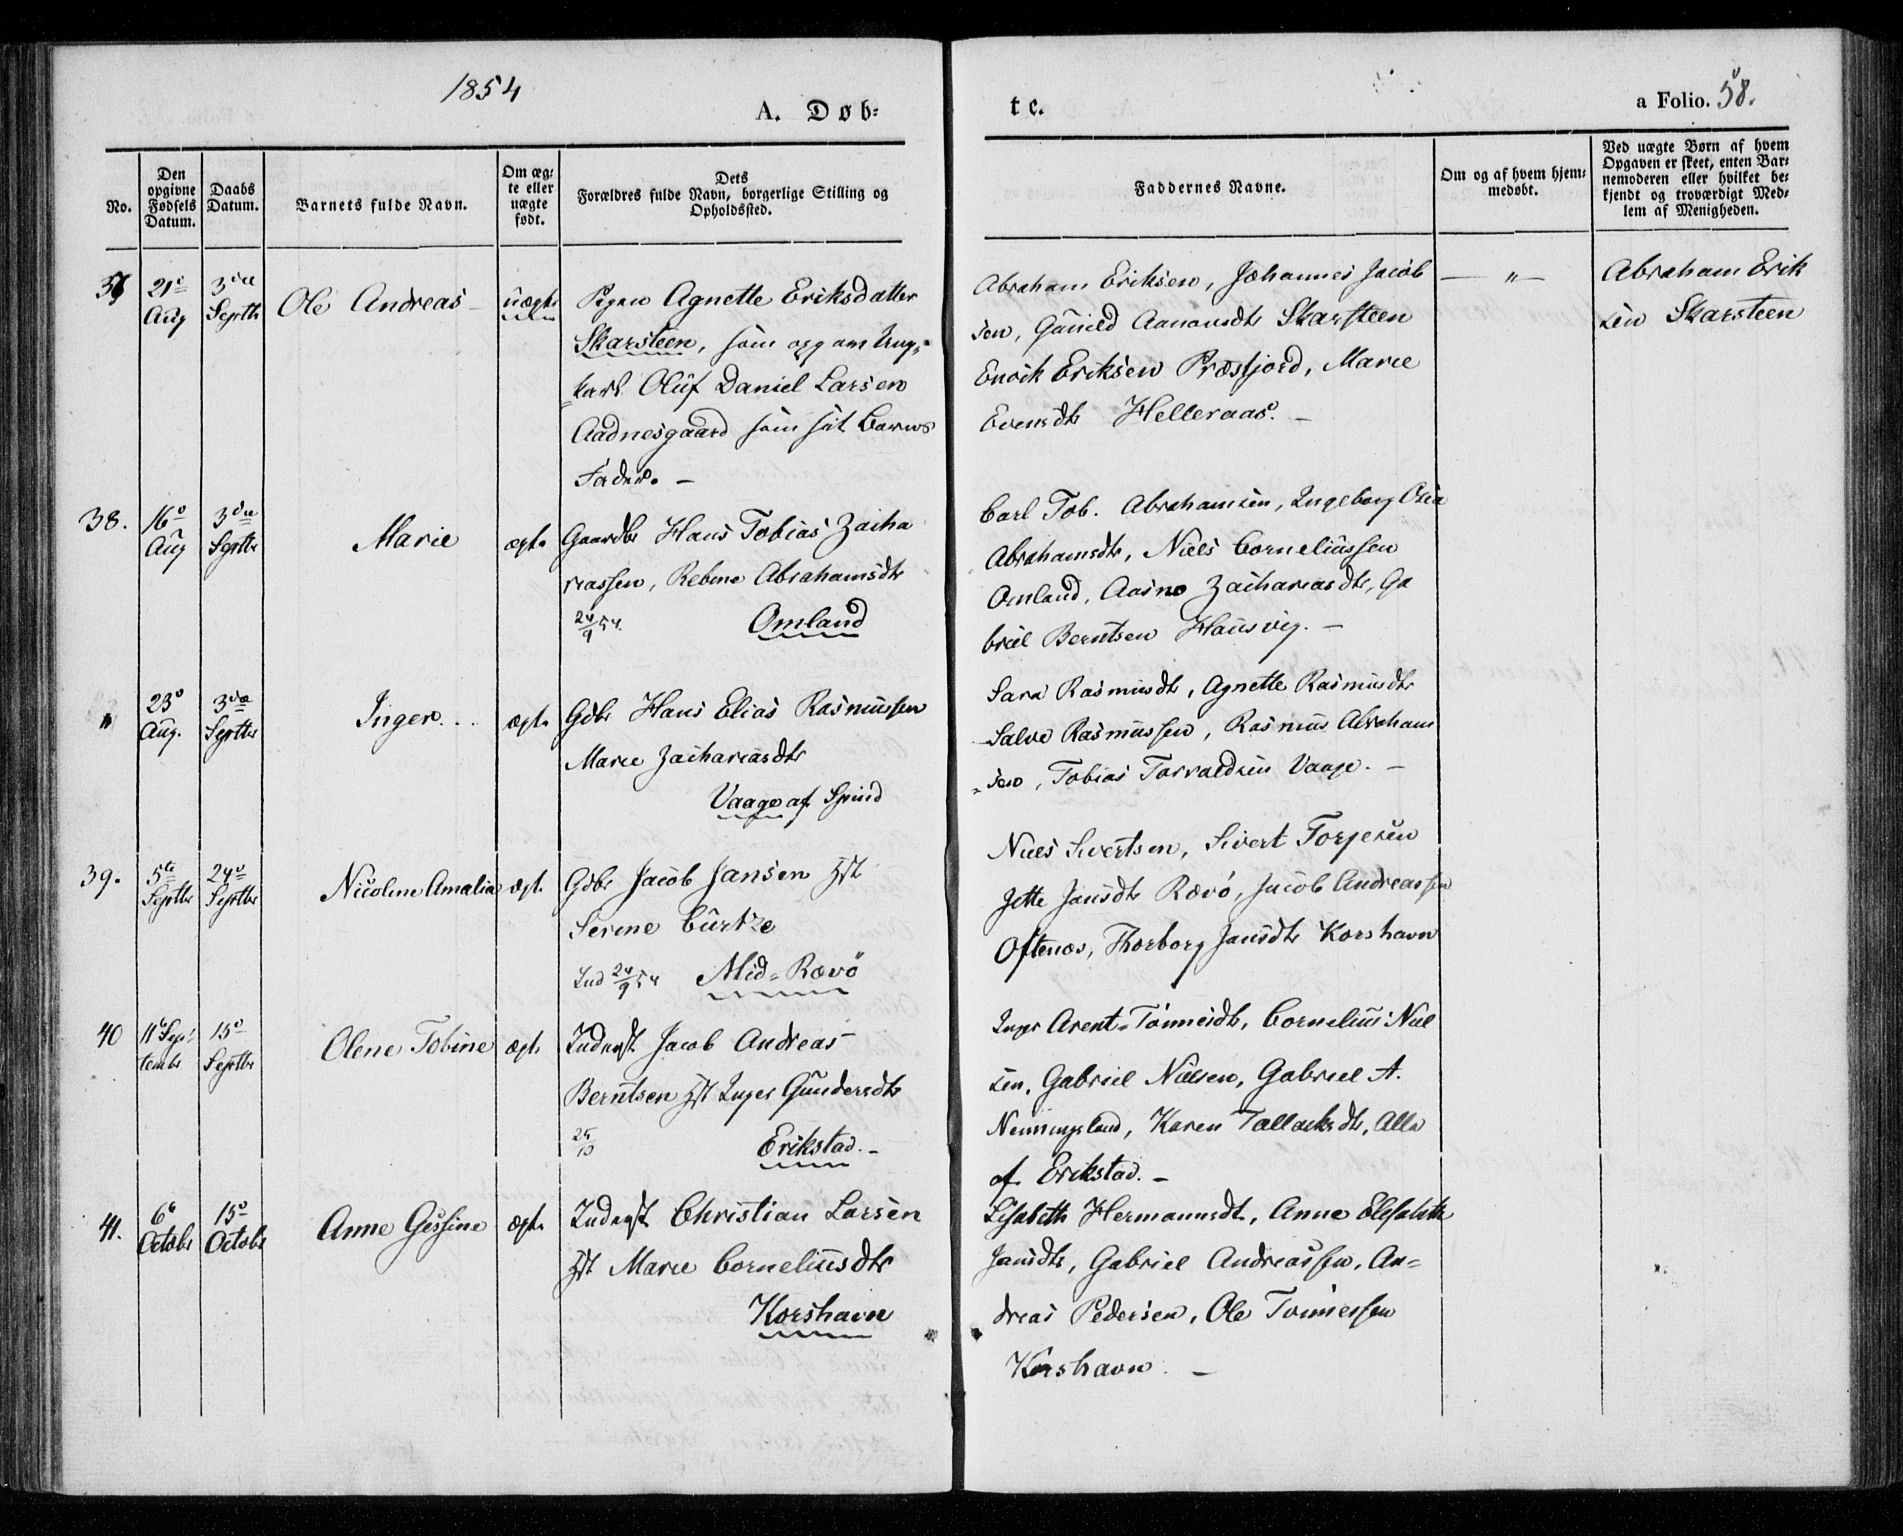 1854
A. Døb-
te.
a Folio. 58.
No.
Den opgivne Fødsels Datum.
Daabs Datum.
Barnets fulde Navn.
Om ægte eller uægte født.
Dets Forældres fulde Navn, borgerlige Stilling og Opholdssted.
Faddernes Navne.
Om og af hvem hjemmedøbt.
Ved uægte Børn af hvem Opgaven er skeet, enten Barnemoderen eller hvilket bekjendt og troværdigt Medlem af Menigheden.
37
21de Aug
3die Septb
Ole Andreas
uægte
Pigen Agnette Eriksdatter
Skarsteen, som opg am Ung-
karl Oluf Daniel Larsen
Aadnesgaard som sit Barns
Fader. —
Abraham Eriksen, Johannes Jacob
sen, Gunild Aanonsdtr Skarsteen
Enock Eriksen Præstfjord, Marie
Evensdtr Helleraas. —
— " —
Abraham Erik
sen Skarsteen
38.
16de Aug
3die Septbr
Marie
ægte
Gaardbr Hans Tobias Zacha
riassen, Rebine Abrahamsdtr
24/9 54. Omland
Carl Tob. Abrahamsen, Ingeborg Olia
Abrahamsdtr, Niels Corneliussen
Omland, Aasne Zachariasdtr, Ga
briel Berntsen Hausvig. —
"
23de Aug.
3die Septbr
Inger...
ægte
Gdbr Hans Elias Rasmussen
Marie Zachariasdtr
Vaage af Spind
Sara Rasmusdtr, Agnette Rasmusdtr
Salve Rasmussen, Rasmus Abraham
sen, Tobias Torvaldsen Vaage. —
39.
5te Septbr
24de Septbr
Nicoline Amalia
ægt.
Gdbr Jacob Jansen Hst
Serine Curtze
Ind 24/9 54 Mid-Rævø
Niels Sivertsen, Sivert Torjesen
Jette Jansdtr Rævø, Jacob Andreassen
Oftenæs, Thorborg Jansdtr Korshavn
40
11te September
15de Septbr
Olene Tobine
ægt.
Inderst Jacob Andreas
Berntsen Hst Inger Gundersdtr
25/10 Erikstad. —
Inger Arent-Tønnesdtr, Cornelius Niel
sen, Gabriel Nielsen, Gabriel A.
Nenningsland, Karen Tallaksdtr, Alle
af Erikstad. —
41.
6te Octobr
15de Octobr
Anne Gessine
ægte
Inderst Christian Larsen
Hst Marie Corneliusdtr
Korshavn
Lisabeth Hermannsdt, Anne Elisabeth
Jansdtr, Gabriel Andreassen, An-
dreas Pedersen, Ole Tønnessen
Korshavn. —